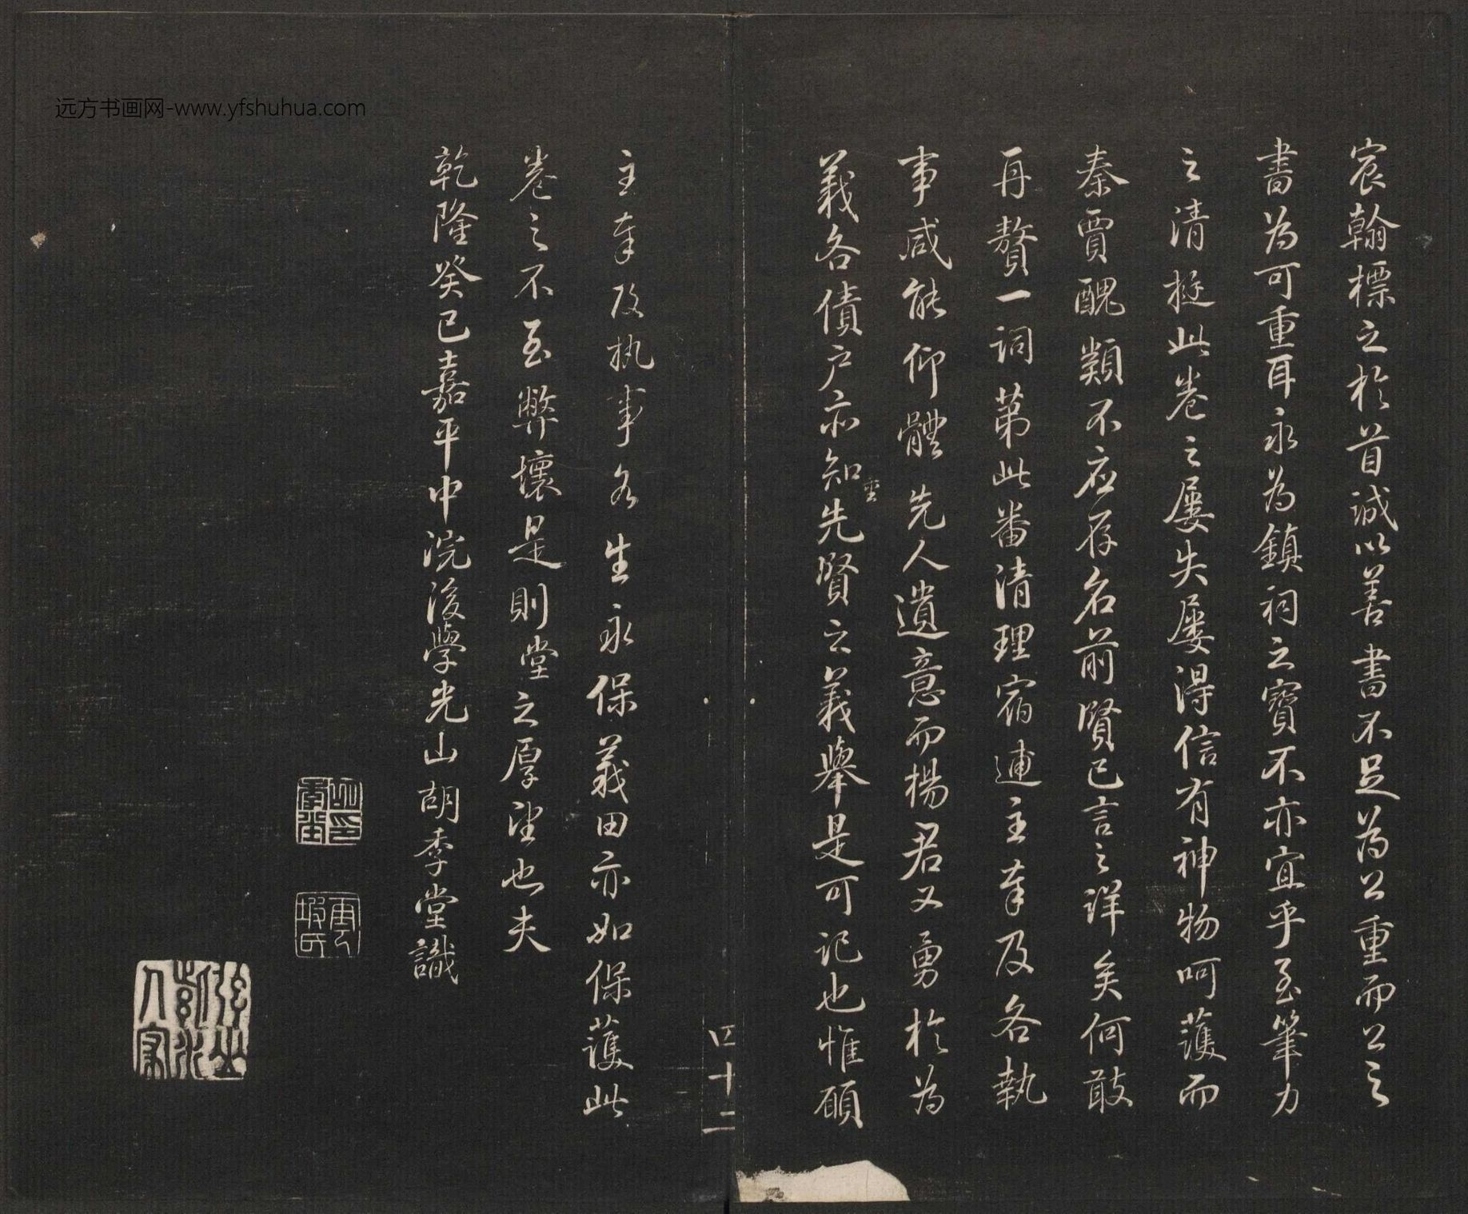 宸翰標之於首誠以善書不足為公重而公之
書為可重耳永為鎮祠之寶不亦宜乎至筆力
之清挺此卷之屢失屢得信有神物呵護而
秦賈醜類不应存名前賢已言之詳矣何敢
再贅一詞第此番清理宿逋主奉及各執
事咸能仰體先人遺意而楊君又勇於為
義各債户亦知先賢之義舉是可記也惟願
重
主奉及执事各生永保義田亦如保護此
卷之不至弊壞是則堂之厚望也夫
乾隆癸巳嘉平中浣後學光山胡季堂識
四十二
远方书画网-www.yfshuhua.com